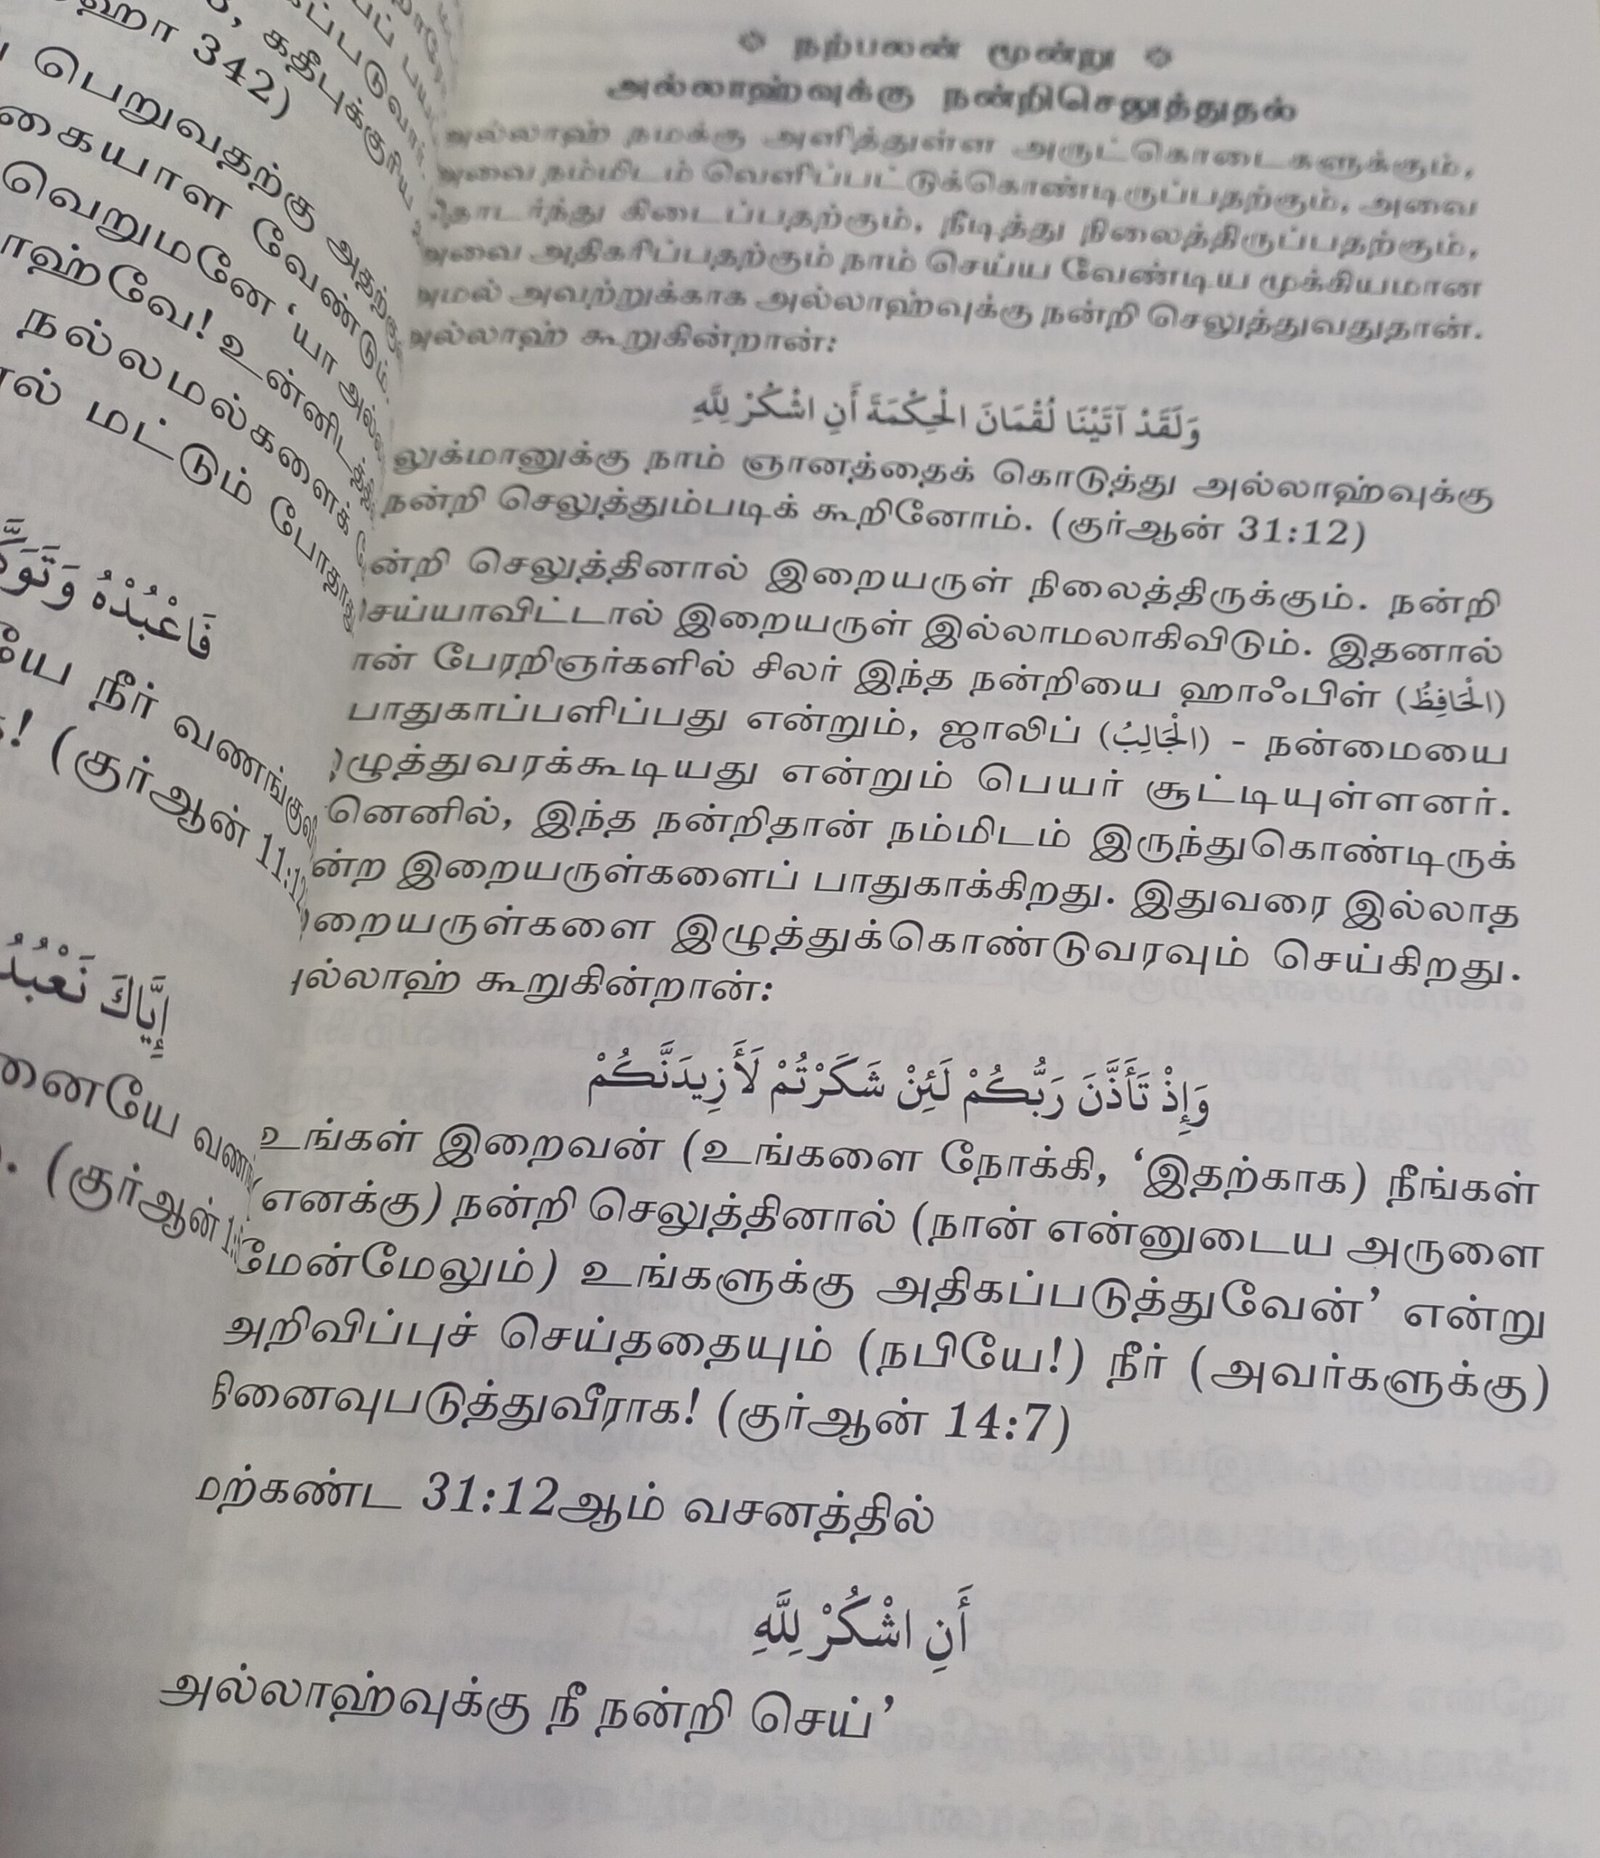 பெறுவதற்கு அதற்கு
கையாள வேண்டும்.
வெறுமனே ‘யா அல்
உன்னிடத்தி
நல்லமல்களைக்
மட்டும் போதாது
فَاعْبُدْهُ
நீர் வணங்கு
(குர்ஆன் 11:12
إِيَّاكَ نَعْبُدُ
வண
(குர்ஆன் 1:
நற்பலன் மூன்று
அல்லாஹ்வுக்கு நன்றிசெலுத்துதல்
அல்லாஹ் நமக்கு அளித்துள்ள அருட்கொடைகளுக்கும்,
அவை நம்மிடம் வெளிப்பட்டுக்கொண்டிருப்பதற்கும், அவை
தொடர்ந்து கிடைப்பதற்கும், நீடித்து நிலைத்திருப்பதற்கும்,
அவை அதிகரிப்பதற்கும் நாம் செய்ய வேண்டிய முக்கியமான
அமல் அவற்றுக்காக அல்லாஹ்வுக்கு நன்றி செலுத்துவதுதான்.
அல்லாஹ் கூறுகின்றான்:
وَلَقَدْ آتَيْنَا لُقْمَانَ الْحِكْمَةَ أَنِ اشْكُرْ لِلَّهِ
லுக்மானுக்கு நாம் ஞானத்தைக் கொடுத்து அல்லாஹ்வுக்கு
நன்றி செலுத்தும்படிக் கூறினோம். (குர்ஆன் 31:12)
ன்றி செலுத்தினால் இறையருள் நிலைத்திருக்கும். நன்றி
செய்யாவிட்டால் இறையருள் இல்லாமலாகிவிடும். இதனால்
ான் பேரறிஞர்களில் சிலர் இந்த நன்றியை ஹாஃபிள் (الْحَافِظُ)
பாதுகாப்பளிப்பது என்றும், ஜாலிப் (الْجَالِبُ) - நன்மையை
ழுத்துவரக்கூடியது என்றும் பெயர் சூட்டியுள்ளனர்.
னெனில், இந்த நன்றிதான் நம்மிடம் இருந்துகொண்டிருக்
ன்ற இறையருள்களைப் பாதுகாக்கிறது. இதுவரை இல்லாத
றையருள்களை இழுத்துக்கொண்டுவரவும் செய்கிறது.
ல்லாஹ் கூறுகின்றான்:
وَإِذْ تَأَذَّنَ رَبُّكُمْ لَئِنْ شَكَرْتُمْ لَأَزِيدَنَّكُمْ
உங்கள் இறைவன் (உங்களை நோக்கி, ‘இதற்காக) நீங்கள்
(எனக்கு) நன்றி செலுத்தினால் (நான் என்னுடைய அருளை
மேன்மேலும்) உங்களுக்கு அதிகப்படுத்துவேன்’ என்று
அறிவிப்புச் செய்ததையும் (நபியே!) நீர் (அவர்களுக்கு)
நினைவுபடுத்துவீராக! (குர்ஆன் 14:7)
மற்கண்ட 31:12ஆம் வசனத்தில்
أَنِ اشْكُرْ لِلَّهِ
அல்லாஹ்வுக்கு நீ நன்றி செய்’